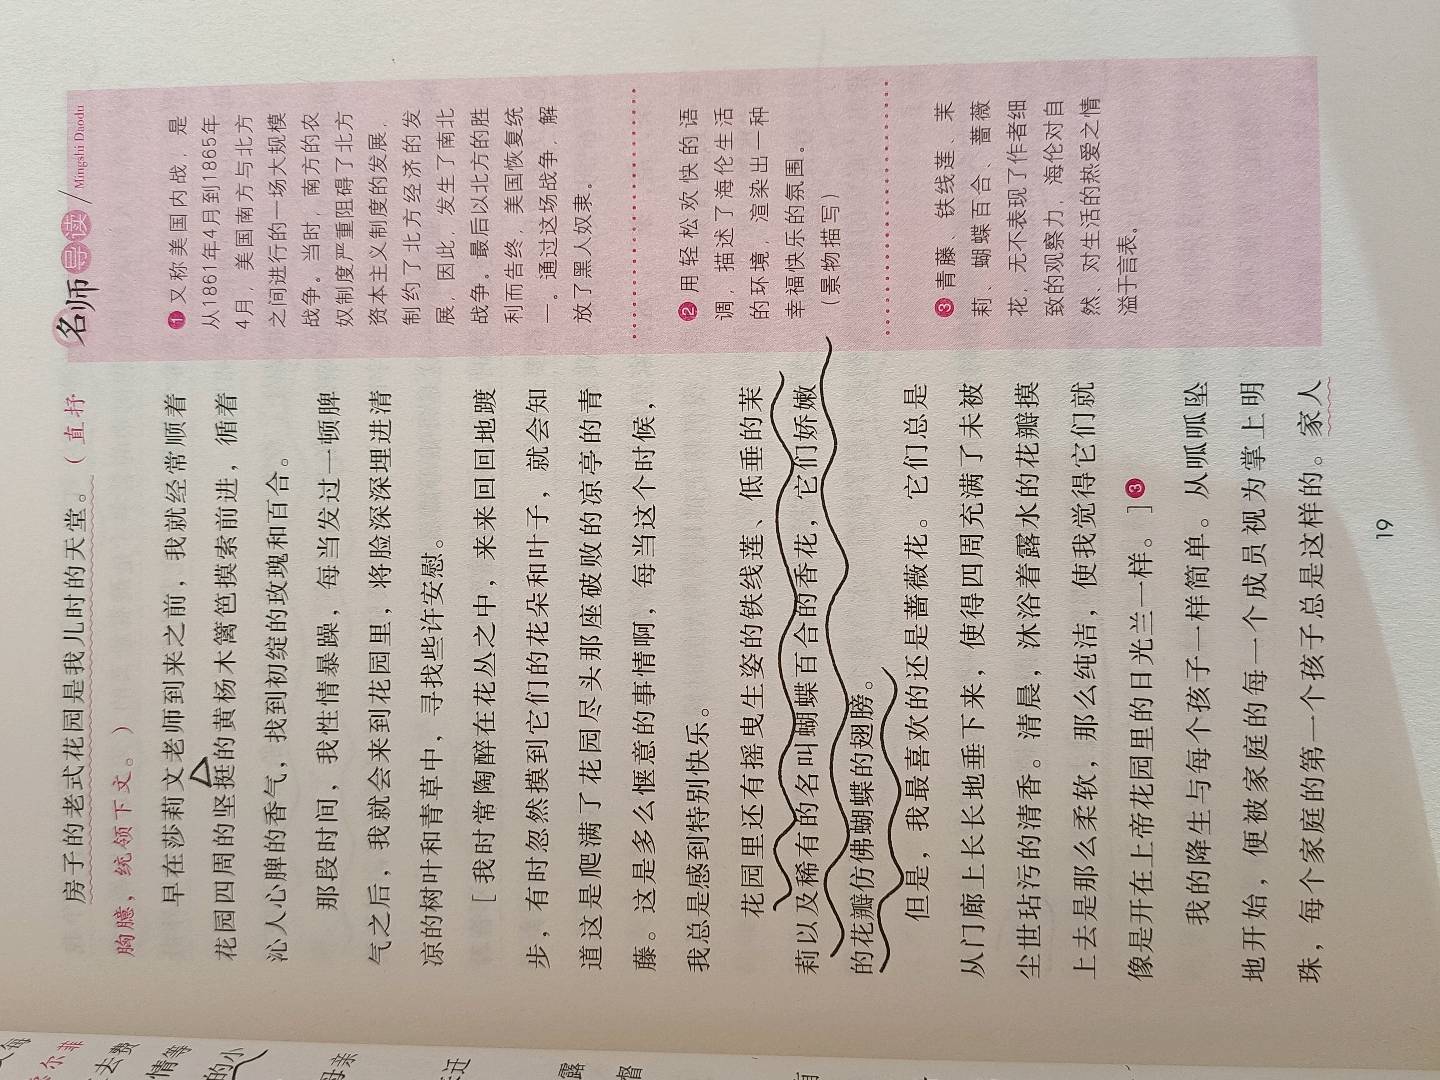 房子的老式花园是我儿时的天堂。（直抒
胸臆，统领下文。）
早在莎莉文老师到来之前，我就经常顺着
花园四周的坚挺的黄杨木篱笆摸索前进，循着
沁人心脾的香气，找到初绽的玫瑰和百合。
那段时间，我性情暴躁，每当发过一顿脾
气之后，我就会来到花园里，将脸深深埋进清
凉的树叶和青草中，寻找些许安慰。
［我时常陶醉在花丛之中，来来回回地踱
步，有时忽然摸到它们的花朵和叶子，就会知
道这是爬满了花园尽头那座破败的凉亭的青
藤。这是多么惬意的事情啊，每当这个时候，
我总是感到特别快乐。
花园里还有摇曳生姿的铁线莲、低垂的茉
莉以及稀有的名叫蝴蝶百合的香花，它们娇嫩
的花瓣仿佛蝴蝶的翅膀。
但是，我最喜欢的还是蔷薇花。它们总是
从门廊上长长地垂下来，使得四周充满了未被
尘世玷污的清香。清晨，沐浴着露水的花瓣摸
上去是那么柔软，那么纯洁，使我觉得它们就
像是开在上帝花园里的日光兰一样。］❸
我的降生与每个孩子一样简单。从呱呱坠
地开始，便被家庭的每一个成员视为掌上明
珠，每个家庭的第一个孩子总是这样的。家人
名师导读 Mingshi Daodu
❶又称美国内战，是
从1861年4月到1865年
4月，美国南方与北方
之间进行的一场大规模
战争。当时，南方的农
奴制度严重阻碍了北方
资本主义制度的发展，
制约了北方经济的发
展，因此，发生了南北
战争。最后以北方的胜
利而告终，美国恢复统
一。通过这场战争，解
放了黑人奴隶。
❷用轻松欢快的语
调，描述了海伦生活
的环境，渲染出一种
幸福快乐的氛围。
（景物描写）
❸青藤、铁线莲、茉
莉、蝴蝶百合、蔷薇
花，无不表现了作者细
致的观察力，海伦对自
然、对生活的热爱之情
溢于言表。
19
尔菲
去费
情等
的小
母亲
露
督